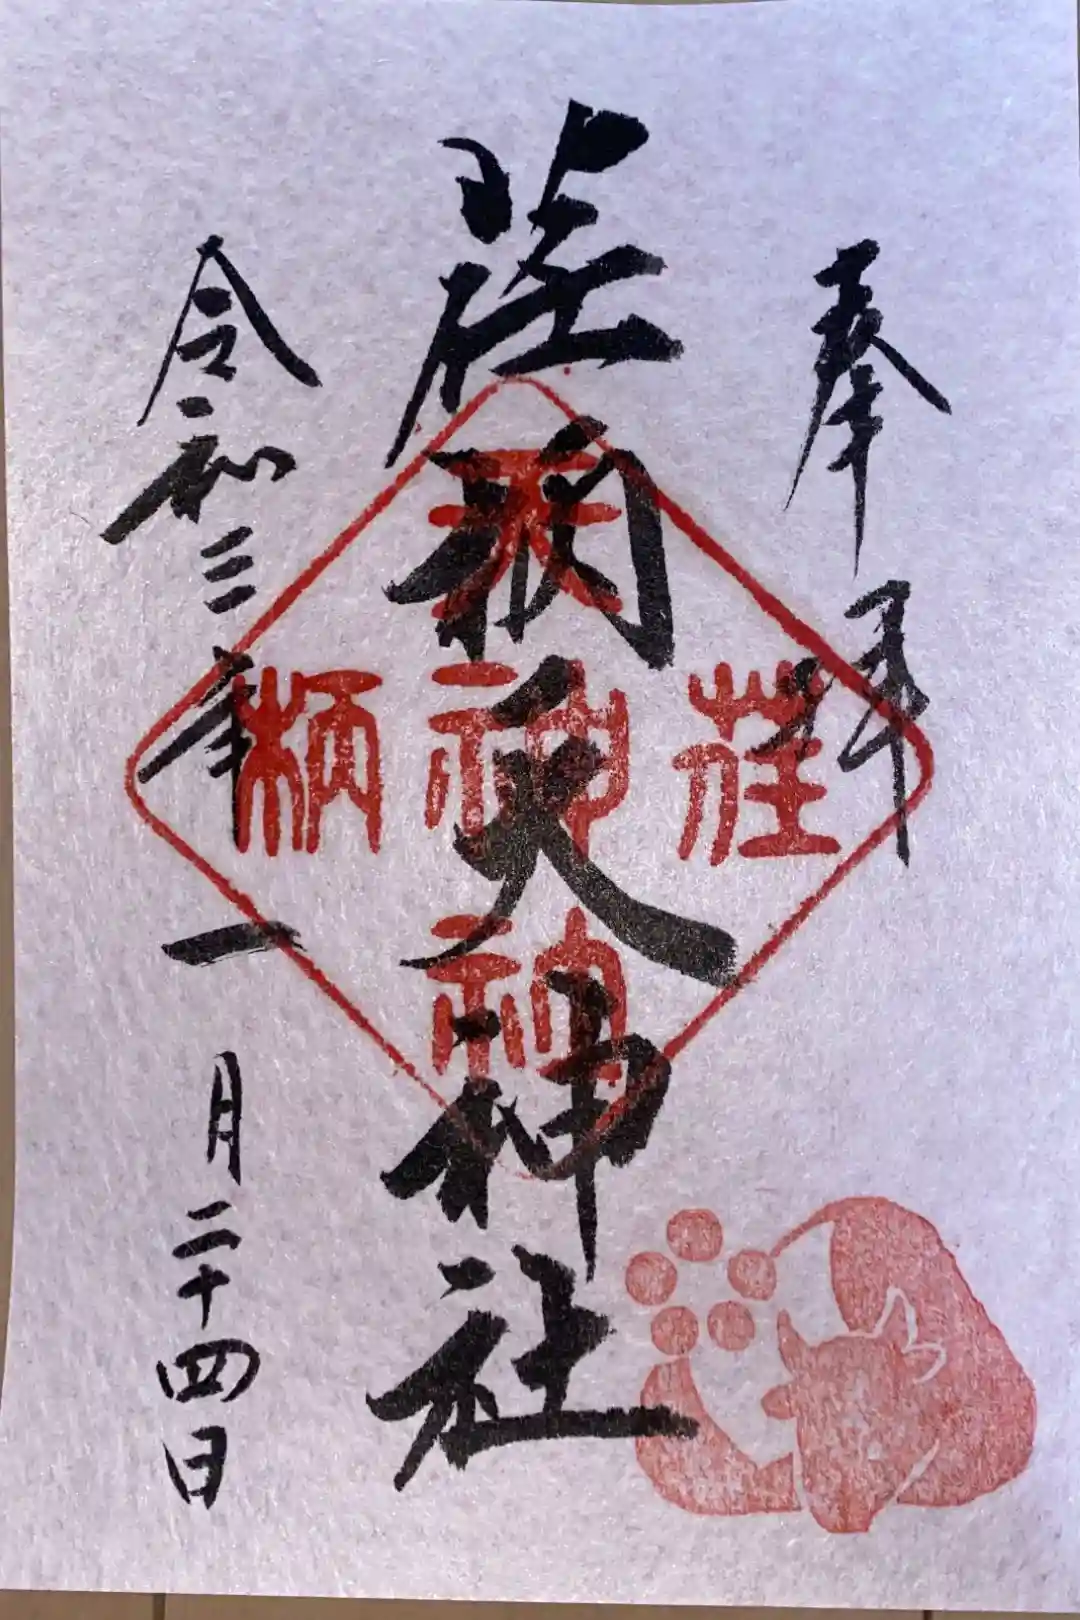 奉拝
荏柄天神社
令和三年一月二十四日
天
荏神柄